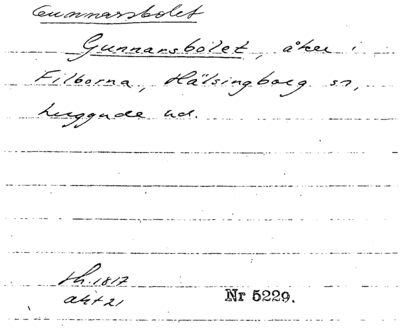 Gunnarsbolet
Gunnarsbolet, åker i
Filborna, Hälsingborg sn,
Luggude hd.
Sh. 1817
akt 21
Nr 5229.